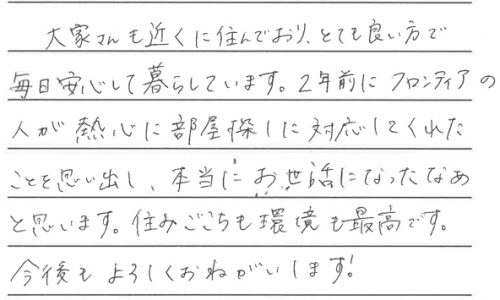 大家さんも近くに住んでおり、とても良い方で
毎日安心して暮らしています。2年前にフロンティアの
人が熱心に部屋探しに対応してくれた
ことを思い出し、本当にお世話になったなあ
と思います。住みごこちも環境も最高です。
今後もよろしくおねがいします!